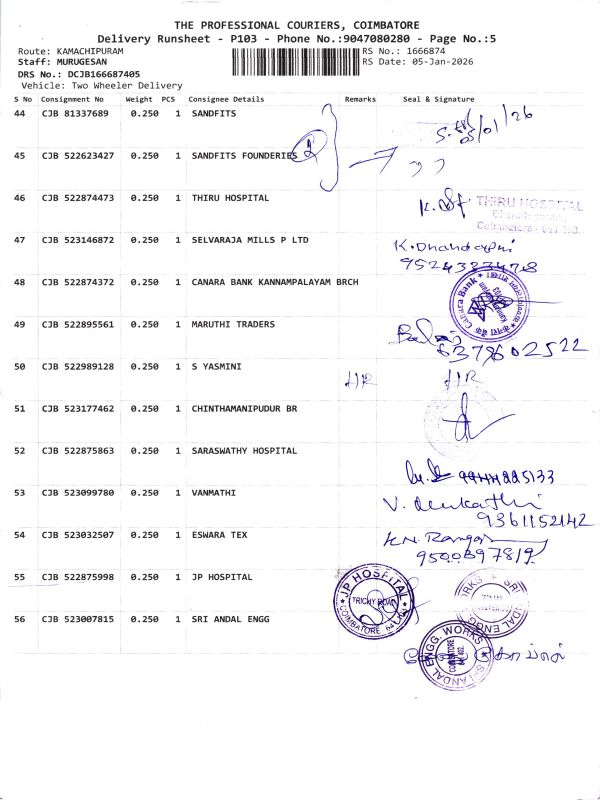 THE PROFESSIONAL COURIERS, COIMBATORE
Delivery Runsheet - P103 - Phone No.:9047080280 - Page No.:5
Route: KAMACHIPURAM RS No.: 1666874
Staff: MURUGESAN RS Date: 05-Jan-2026
DRS No.: DCJB166687405
Vehicle: Two Wheeler Delivery
S No Consignment No Weight PCS Consignee Details Remarks Seal & Signature
44 CJB 81337689 0.250 1 SANDFITS
05/01/26
45 CJB 522623427 0.250 1 SANDFITS FOUNDERIES 2
46 CJB 522874473 0.250 1 THIRU HOSPITAL
THIRU HOSPITAL
47 CJB 523146872 0.250 1 SELVARAJA MILLS P LTD
K. Dhandapni
48 CJB 522874372 0.250 1 CANARA BANK KANNAMPALAYAM BRCH
Canara Bank
49 CJB 522895561 0.250 1 MARUTHI TRADERS
6379602522
50 CJB 522989128 0.250 1 S YASMINI
51 CJB 523177462 0.250 1 CHINTHAMANIPUDUR BR
52 CJB 522875863 0.250 1 SARASWATHY HOSPITAL
53 CJB 523099780 0.250 1 VANMATHI
9361152142
54 CJB 523032507 0.250 1 ESWARA TEX
K.N. Rangas
9500397819
55 CJB 522875998 0.250 1 JP HOSPITAL
JP HOSPITAL
TRICHY ROAD
COIMBATORE
56 CJB 523007815 0.250 1 SRI ANDAL ENGG
ANDAL ENGG. WORKS